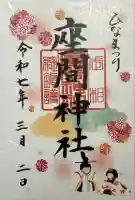 ひなまつり
座間神社
令和七年三月二日